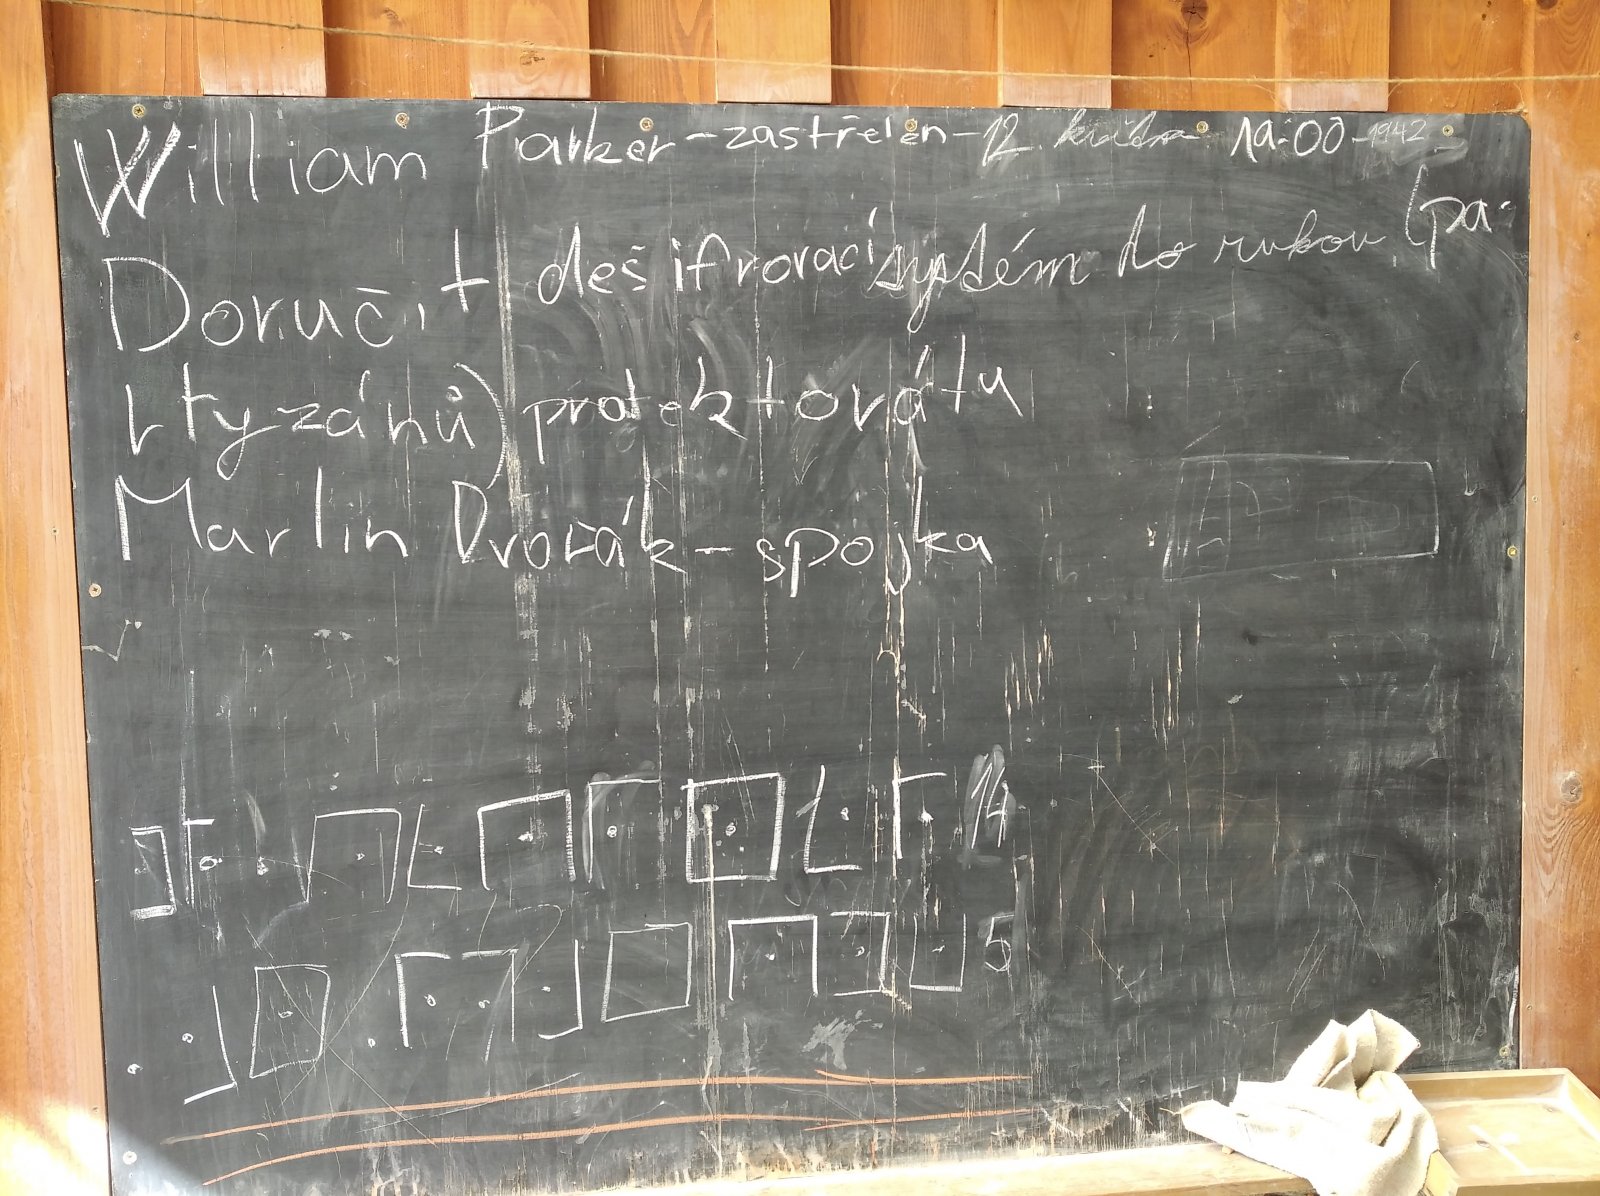 William Parker - zastřelen - 12. května 19:00 - 1942
Doručit dešifrovací systém do rukou (pa-
rtyzánů) protektorátu
Martin Dvořák - spojka
14
5